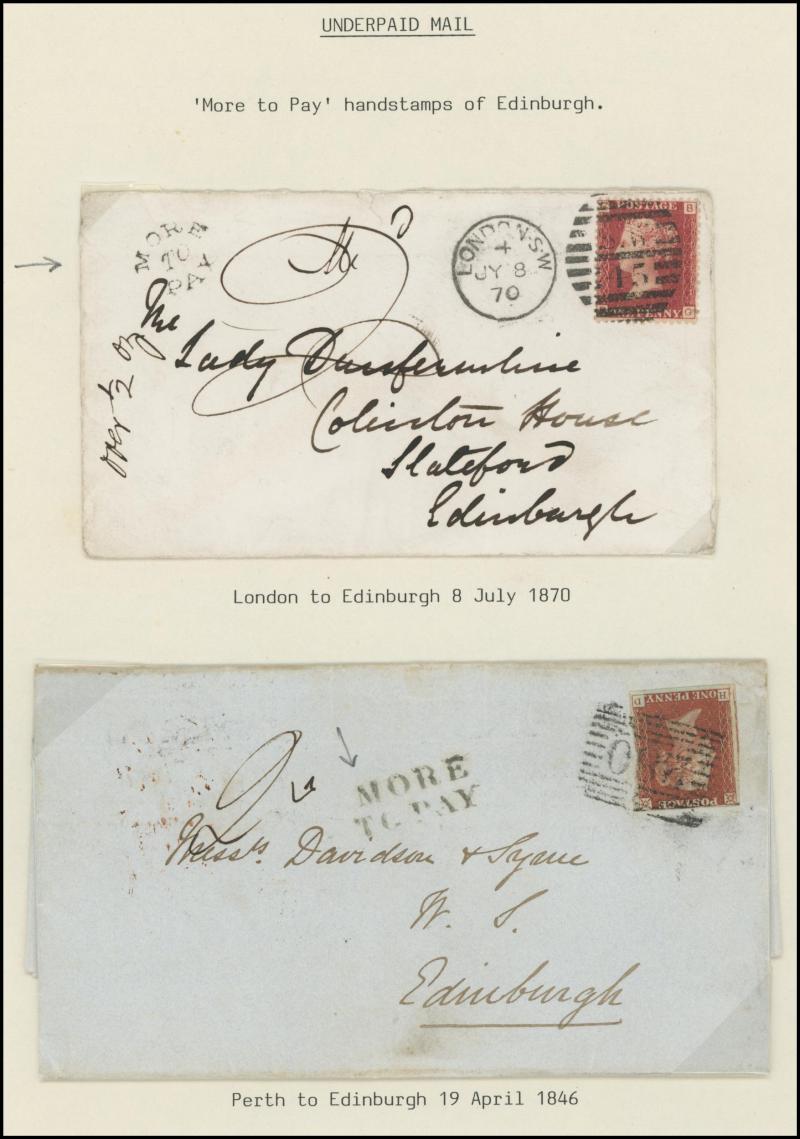 UNDERPAID MAIL
'More to Pay' handstamps of Edinburgh.
MORE
TO
PAY
LONDON·S.W
4
JY 8
70
S.W
15
POSTAGE B
over 1/2 oz
The
Lady Dunfermline
Colinton House
Slateford
Edinburgh
London to Edinburgh 8 July 1870
2
MORE
TO PAY
H ONE PENNY D
POSTAGE
Messrs. Davidson & Syme
W. S.
Edinburgh
Perth to Edinburgh 19 April 1846